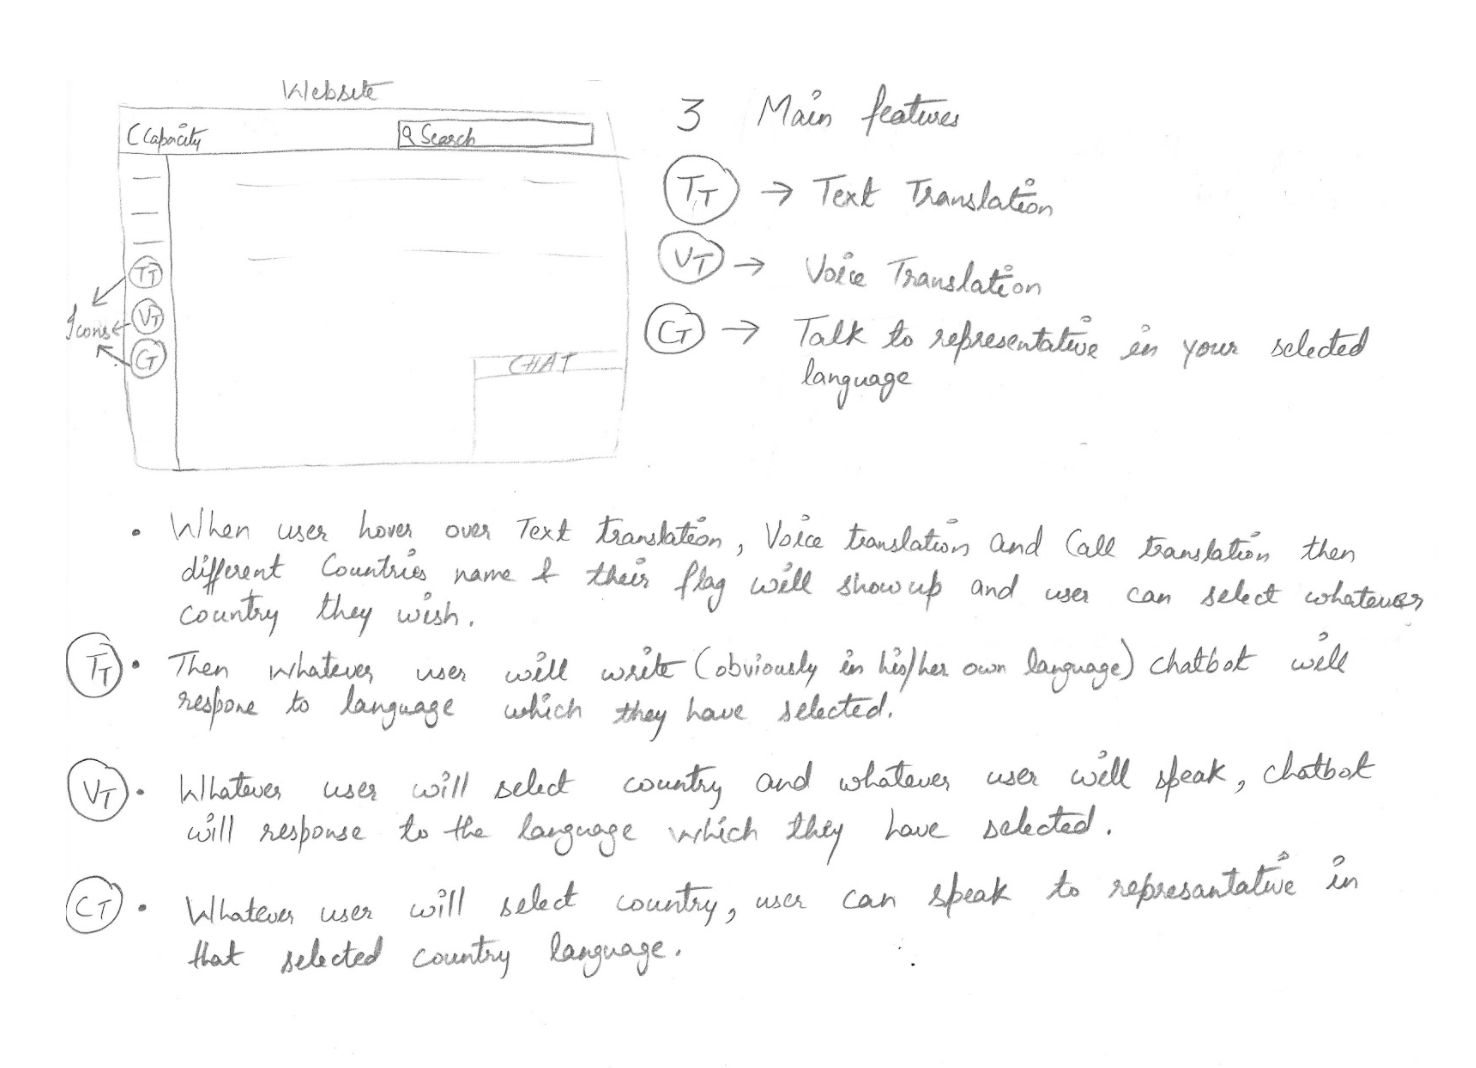 Website
C Capacity
Search
TT
VT
CT
Icons
CHAT
3 Main features
TT → Text Translation
VT → Voice Translation
CT → Talk to representative in your selected
language
• When user hover over Text translation, Voice translation and Call translation then
different Countries name & their flag will show up and user can select whatever
country they wish.
TT • Then whatever user will write (obviously in his/her own language) chatbot will
respone to language which they have selected.
VT • Whatever user will select country and whatever user will speak, chatbot
will response to the language which they have selected.
CT • Whatever user will select country, user can speak to represantative in
that selected country language.